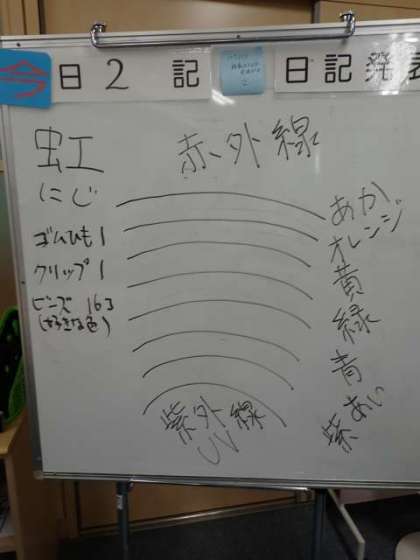 今日2記
日記発表
虹
にじ
赤外線
ゴムひも1
クリップ1
ビーズ 16コ
(好きな色)
あか
オレンジ
黄
緑
青
あい
紫
紫外線
UV